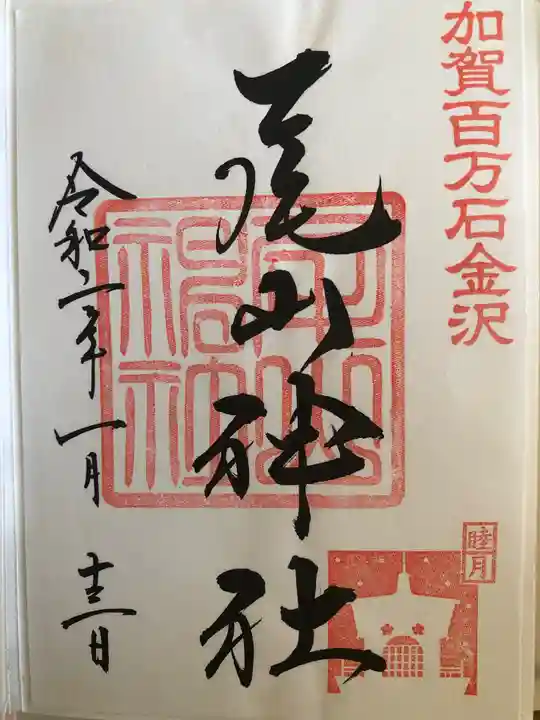 加賀百万石金沢
尾山神社
尾山神社
令和二年一月十三日
睦月